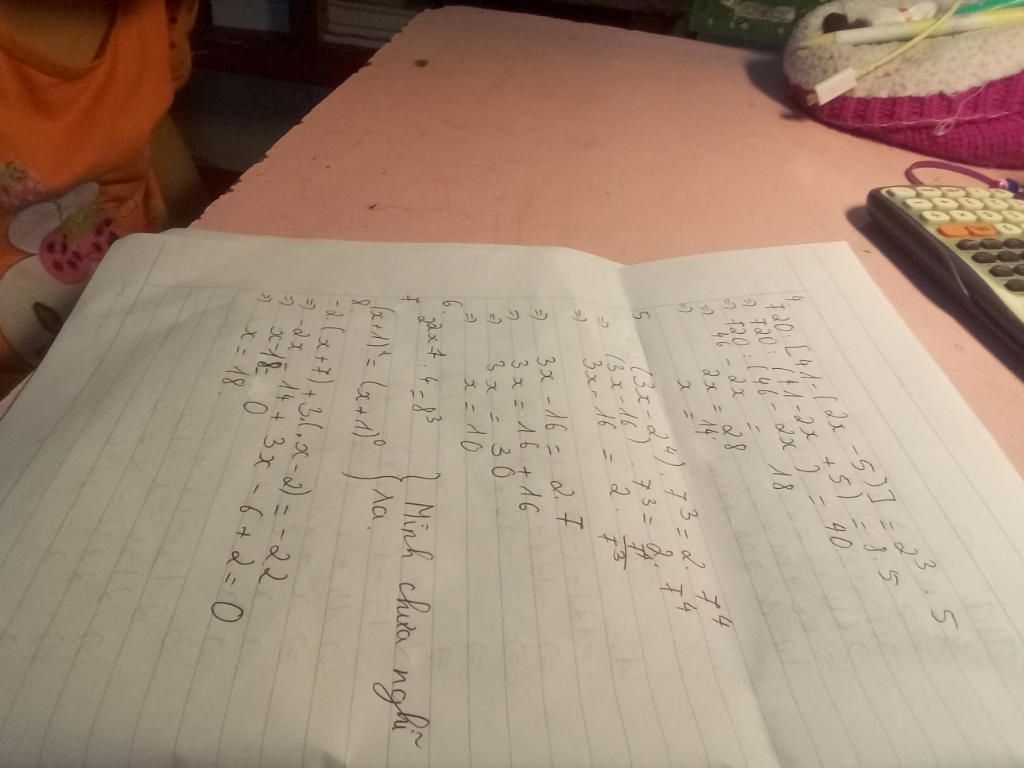 4 720: [41 - (2x - 5)] = 2^3 . 5
=> 720 : (41 - 2x + 5) = 8.5
=> 720 : (46 - 2x) = 40
=> 46 - 2x = 18
=> 2x = 28
=> x = 14
5 (3x - 2^4) . 7^3 = 2 . 7^4
=> (3x - 16) . 7^3 = 2 . 7^4
=> 3x - 16 = 2 . 7^4 / 7^3
=> 3x - 16 = 2.7
=> 3x = 16 + 16
=> 3x = 30
=> x = 10
6.
7 2^2x+ : 4 = 8^3 } Mình chưa nghĩ
8 (x+1)^2 = (x+1)^0 } ra.
-2(x+7) + 3(x-2) = -22
=> -2x - 14 + 3x - 6 + 22 = 0
=> x - 18 = 0
=> x = 18.